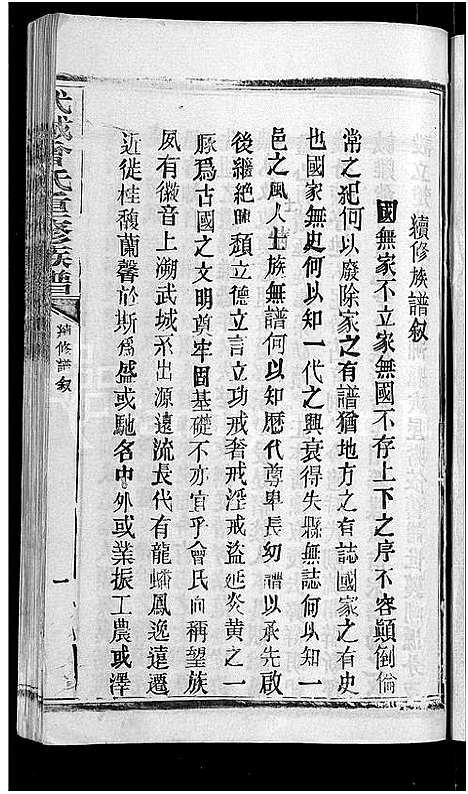 續修族譜叙
國無家不立家無國不存上下之序不容顛倒倫
常之紀何以廢除家之有譜猶地方之有誌國家之有史
也國家無史何以知一代之興衰得失縣無誌何以知一
邑之風人士族無譜何以知歷代尊卑長幼譜以承先啟
後繼絕興頹立德立言立功戒奢戒淫戒盜延炎黃之一
脈爲古國之文明奠牢固基礎不亦宜乎曾氏向稱望族
夙有徽音上溯武城系出源遠流長代有龍蟠鳳逸遠遷
近徙桂馥蘭馨於斯爲盛或馳名中外或業振工農或澤
武城曾氏重修族譜
續修譜叙
一